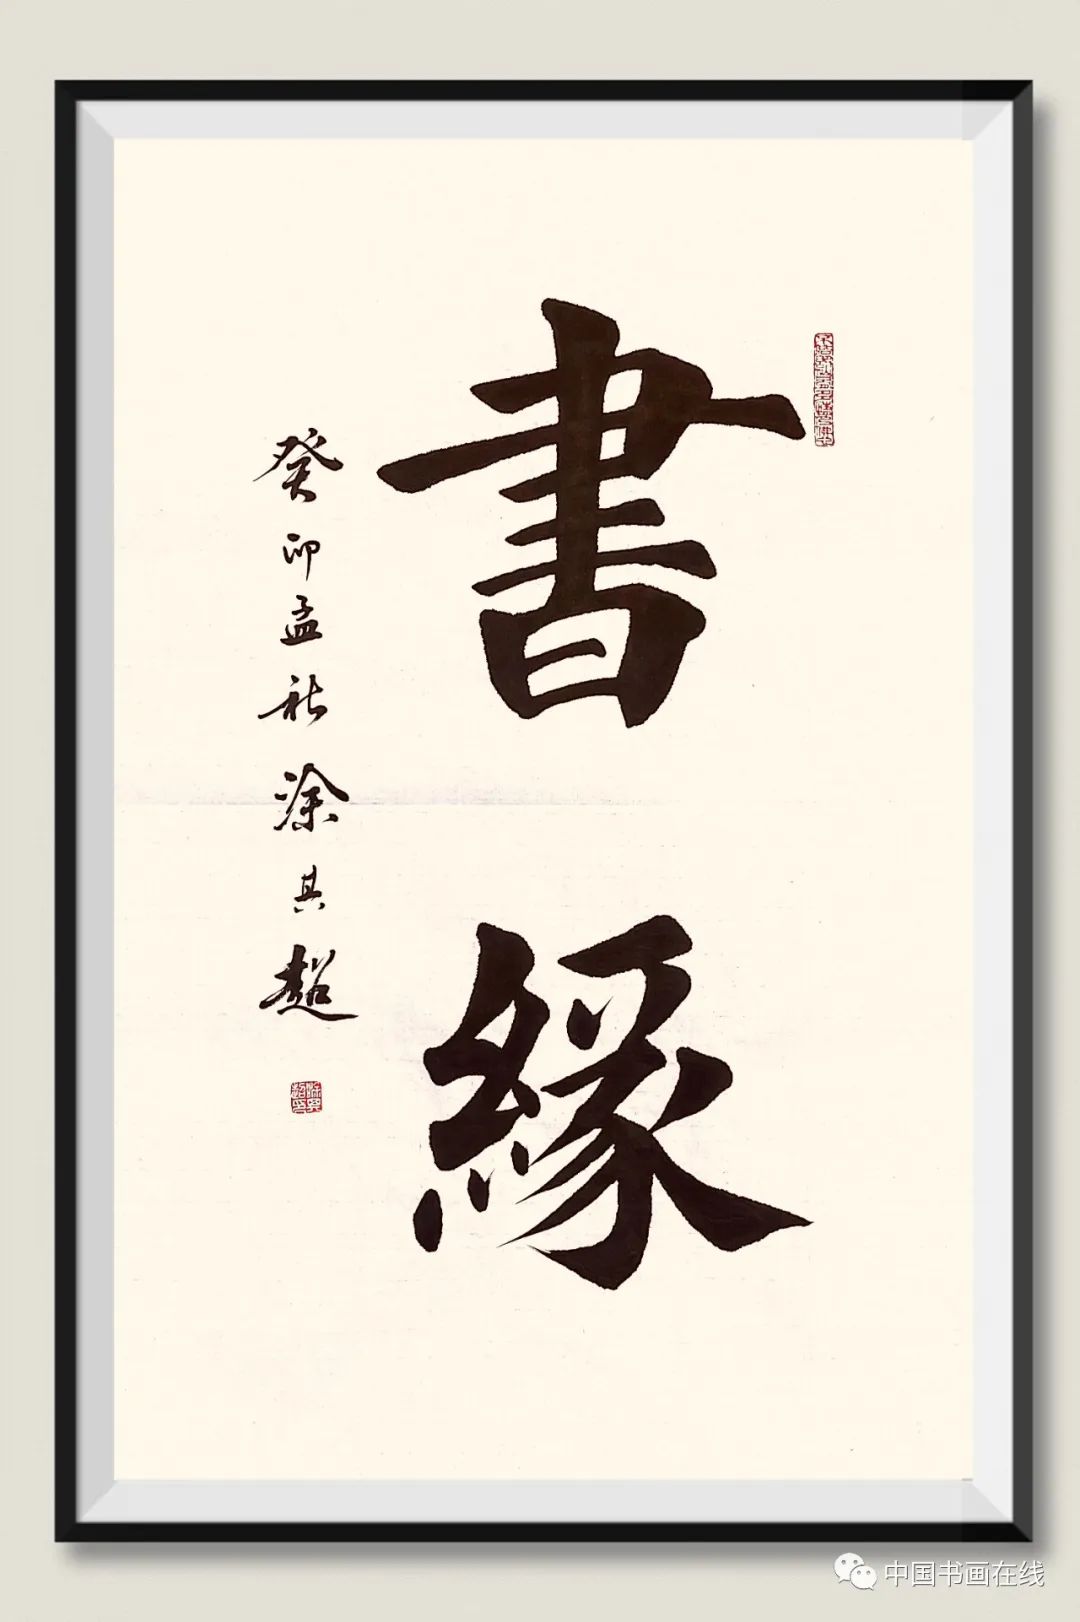 書
緣
癸卯孟秋涂其超
中国书画在线